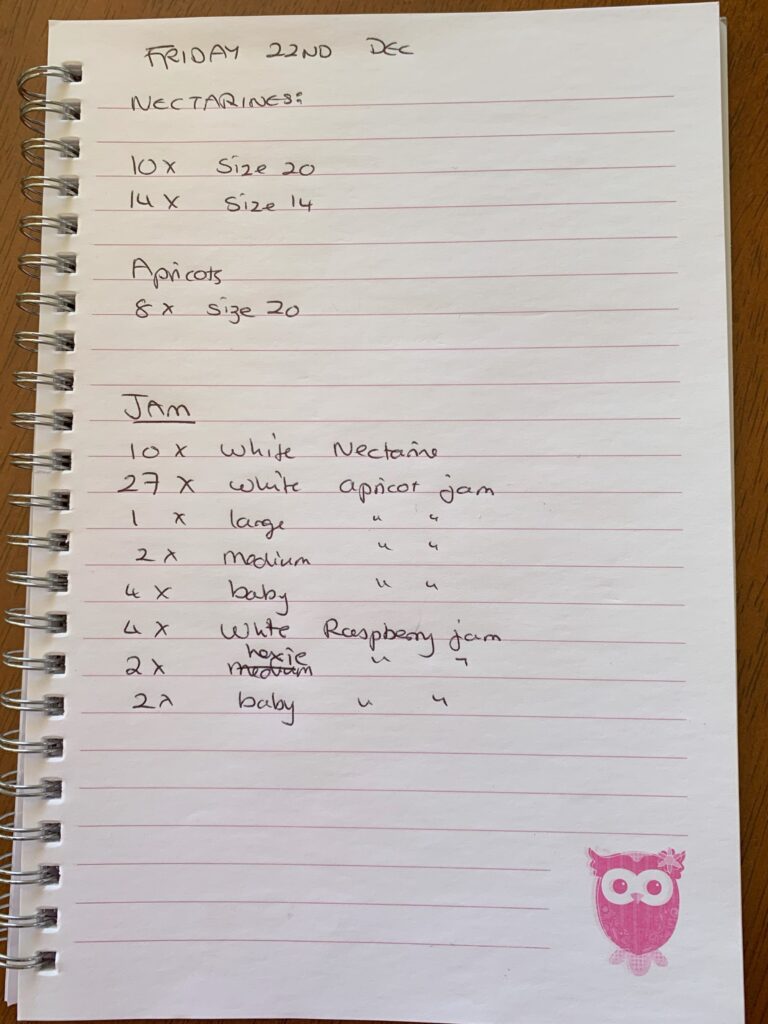 FRIDAY 22ND DEC
NECTARINES:
10 x Size 20
14 x Size 14
Apricots
8 x size 20
JAM
10 x white Nectarine
27 x white apricot jam
1 x large " "
2 x medium " "
4 x baby " "
4 x white Raspberry jam
hexie
2 x medium " "
2 x baby " "